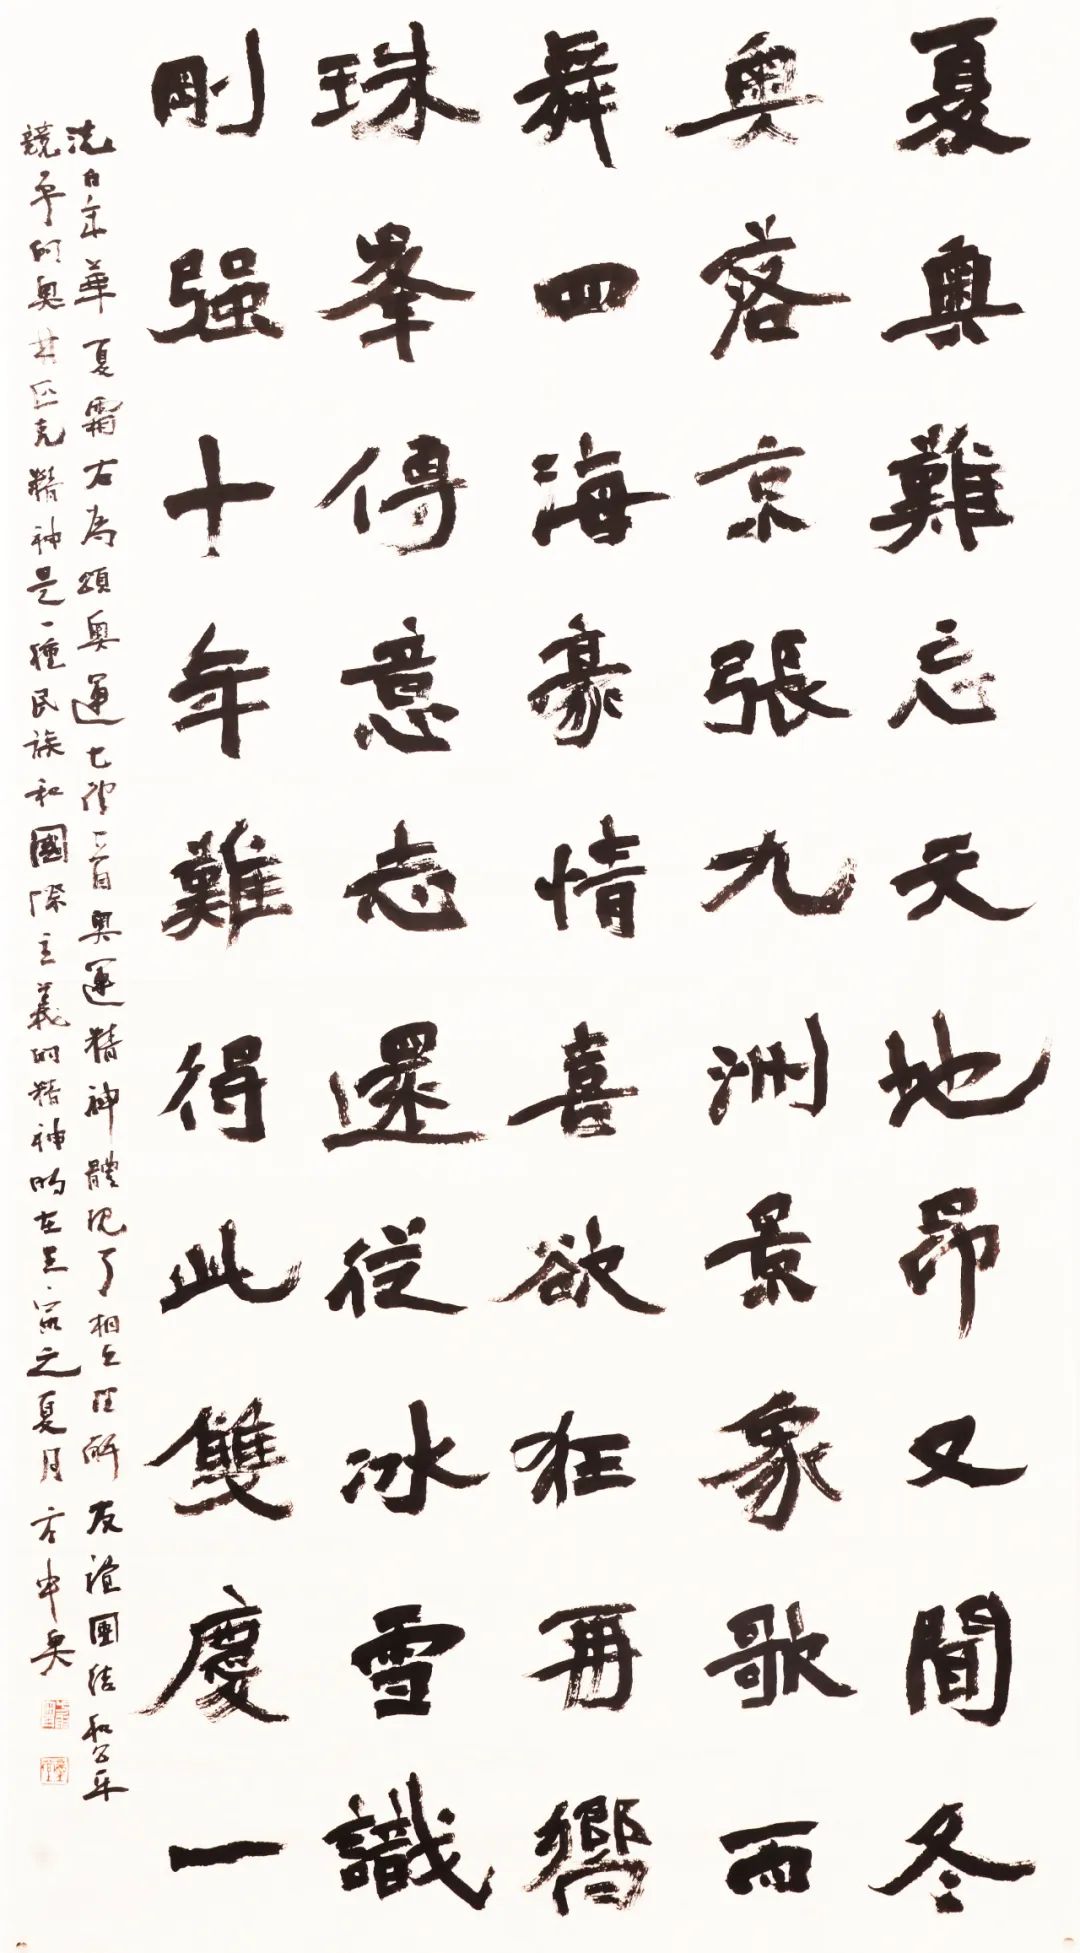 夏奧難忘天地昂又聞冬
奧落京張九洲景象歌而
舞四海豪情喜欲狂再嚮
珠峯傳意志還從冰雪識
剛強十年難得此雙慶一
洗百年華夏霜右為頌奧運七律一首奧運精神體現了相互理解友誼團結和公平
競爭的奧林匹克精神是一種民族和國際主義的精神時在壬寅之夏月方中奧